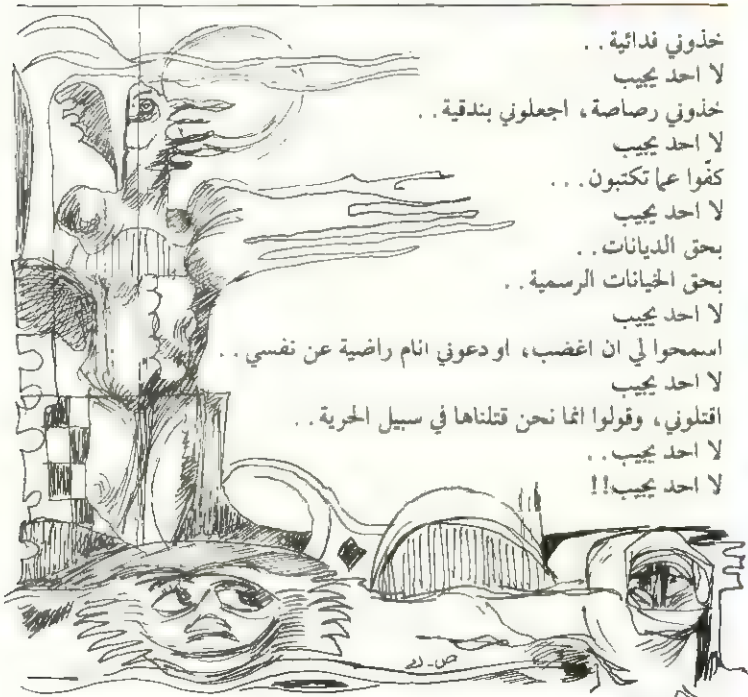 خذوني فدائية . .
لا احد يجيب
خذوني رصاصة، اجعلوني بندقية . .
لا احد يجيب
كفّوا عما تكتبون . . .
لا احد يجيب
بحق الديانات . .
بحق الخيانات الرسمية . .
لا احد يجيب
اسمحوا لي ان اغضب، او دعوني انام راضية عن نفسي . .
لا احد يجيب
اقتلوني، وقولوا انما نحن قتلناها في سبيل الحرية . .
لا احد يجيب . .
لا احد يجيب!!